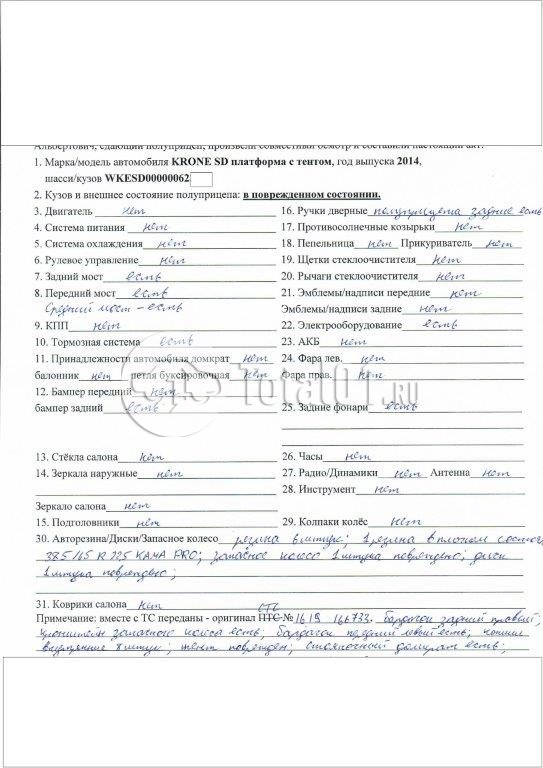 Альбертович, сдающий полуприцеп, произвели совместный осмотр и составили настоящий акт:
1. Марка/модель автомобиля KRONE SD платформа с тентом, год выпуска 2014,
шасси/кузов WKESD00000062
2. Кузов и внешнее состояние полуприцепа: в поврежденном состоянии.
3. Двигатель нет
4. Система питания нет
5. Система охлаждения нет
6. Рулевое управление нет
7. Задний мост есть
8. Передний мост есть
Средний мост - есть
9. КПП нет
10. Тормозная система есть
11. Принадлежности автомобиля домкрат нет
балонник нет петля буксировочная нет
12. Бампер передний нет
бампер задний есть
13. Стёкла салона нет
14. Зеркала наружные нет
Зеркало салона нет
15. Подголовники нет
16. Ручки дверные полуприцепа задние есть
17. Противосолнечные козырьки нет
18. Пепельница нет Прикуриватель нет
19. Щетки стеклоочистителя нет
20. Рычаги стеклоочистителя нет
21. Эмблемы/надписи передние нет
Эмблемы/надписи задние нет
22. Электрооборудование есть
23. АКБ нет
24. Фара лев. нет
Фара прав. нет
25. Задние фонари есть
26. Часы нет
27. Радио/Динамики нет Антенна нет
28. Инструмент нет
29. Колпаки колёс нет
30. Авторезина/Диски/Запасное колесо резина 6 штук; 1 резина в плохом
385/65 R 225 КАМА PRO; запасное колесо 1 штука повреждено; диски
1 штука повреждено;
31. Коврики салона нет
СТС
Примечание: вместе с ТС переданы - оригинал ПТС № 1619 166733. Бардачок задний правый;
запасного колеса есть; бардачок передний левый есть;
внутренние 8 штук; тент поврежден; стояночный домкрат есть;
Total01.ru